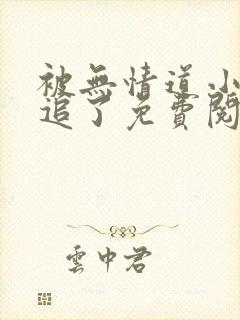 被無情道小
追了免費閱
雲中君